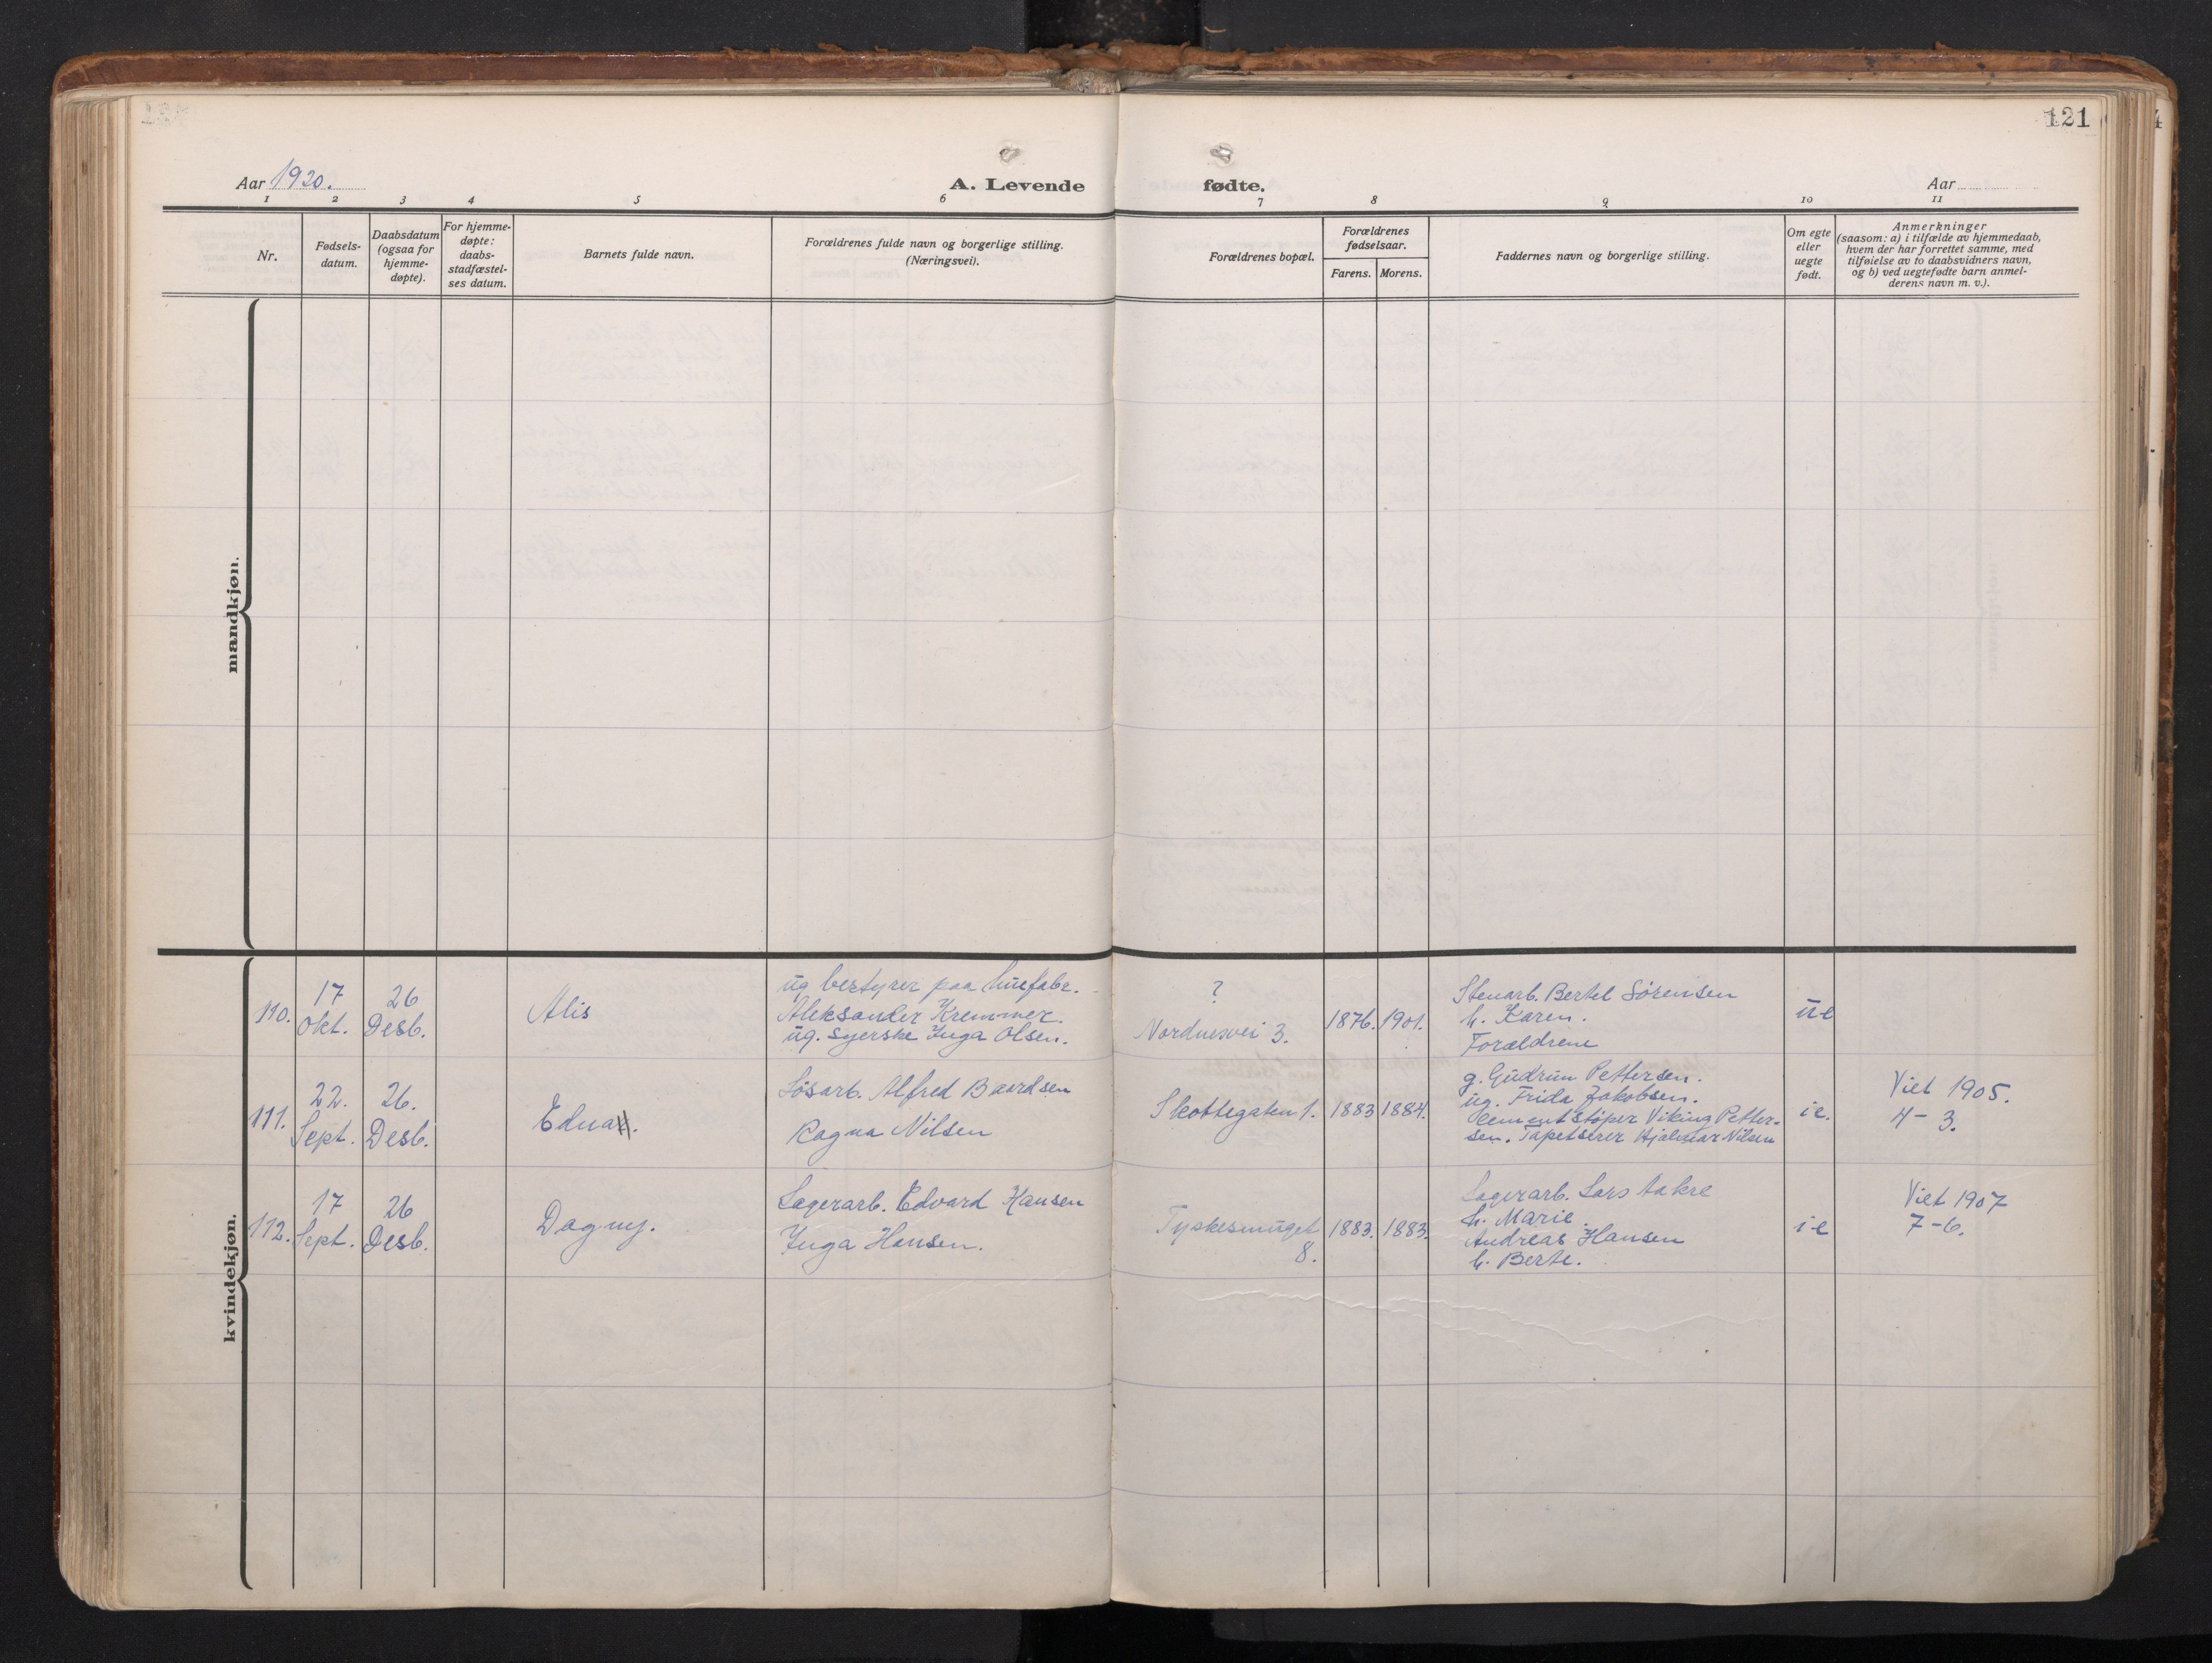 121
Aar 1920.
A. Levende fødte.
Aar
1 2 3 4 5 6 7 8 9 10 11
Nr.
Fødsels-
datum.
Daabsdatum
(ogsaa for
hjemme-
døpte).
For hjemme-
døpte:
daabs-
stadfæstel-
ses datum.
Barnets fulde navn.
Forældrenes fulde navn og borgerlige stilling.
(Næringsvei).
Forældrenes bopæl.
Forældrenes
fødselsaar.
Farens. Morens.
Faddernes navn og borgerlige stilling.
Om egte
eller
uegte
født.
Anmerkninger
(saasom: a) i tilfælde av hjemmedaab,
hvem der har forrettet samme, med
tilføielse av to daabsvidners navn,
og b) ved uegtefødte barn anmel-
derens navn m. v.).
mandkjøn.
kvindekjøn.
110.
17
Okt.
26
Desb.
Alis
ug bestyrer paa huefabr.
Aleksander Kremmer.
ug. syerske Inga Olsen.
?
Nordnesvei 3.
1876. 1901.
Stenarb. Bertel Sørensen
h. Karen.
Forældrene
ue
111.
22.
Sept.
26.
Desb.
Edna.
Løsarb. Alfred Baardsen
Ragna Nilsen
Skottegaten 1.
1883 1884.
g. Gudrun Pettersen.
ug. Frida Jakobsen.
Cementstøper Viking Petter-
sen. Tapetserer Hjalmar Nilsen
ie.
Viet 1905.
4-3.
112.
17
Sept.
26
Desb.
Dagny.
Lagerarb. Edvard Hansen
Inga Hansen.
Tyskesmuget
8.
1883. 1883.
Lagerarb. Lars Aakre
h. Marie.
Andreas Hansen
h. Berte.
ie
Viet 1907
7-6.